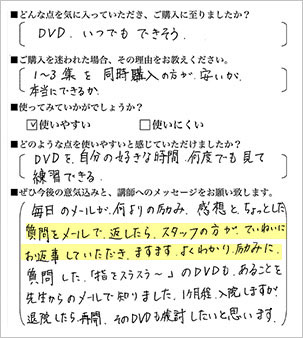 ■どんな点を気に入っていただき、ご購入に至りましたか?
DVD. いつでもできそう.
■ご購入を迷われた場合、その理由をお教えください。
1〜3集を同時購入の方が安いが、
本当にできるか.
■使ってみていかがでしょうか?
☑使いやすい □使いにくい
■どのような点を使いやすいと感じていただけましたか?
DVDを、自分の好きな時間、何度でも見て
練習できる.
■ぜひ今後の意気込みと、講師へのメッセージをお願い致します。
毎日のメールが、何よりの励み、感想と、ちょっとした
質問をメールで返したら、スタッフの方が、ていねいに
お返事していただき、ますます、よくわかり、励みに.
質問した、「指をスラスラ〜」のDVDも、あることを
先生からのメールで知りました. 1ヶ月後、入院しますが、
退院したら再開、そのDVDも検討したいと思います.